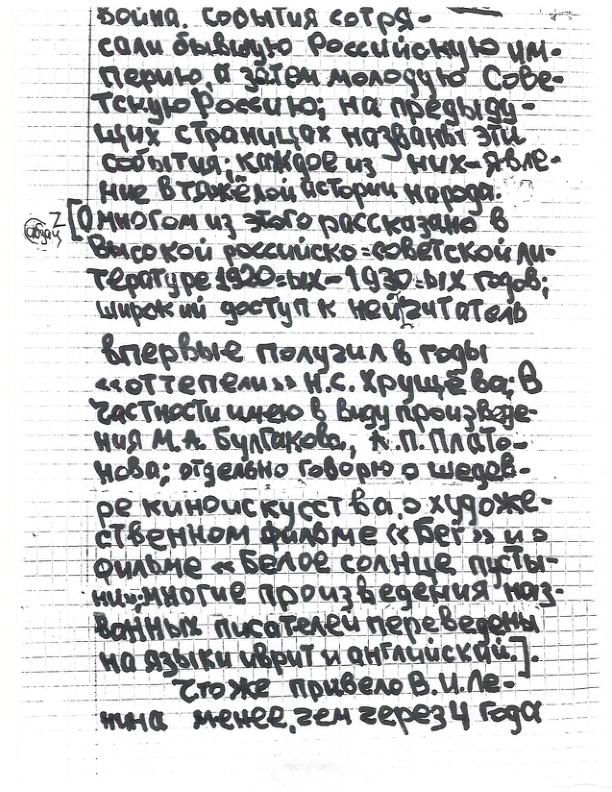 война. События сотря-
сали бывшую Российскую им-
перию, а затем молодую Сове-
тскую Россию; на предыду-
щих страницах названы эти
события; каждое из них-явле-
ние в тяжёлой истории народа.
Z абзац [О многом из этого рассказано в
высокой российско=советской ли-
тературе 1920=ых-1930=ых годов;
широкий доступ к ней читатель
впервые получил в годы
««оттепели»» Н.С. Хрущёва; В
частности имею в виду произведе-
ния М.А. Булгакова, А.П. Плато-
нова; отдельно говорю о шедев-
ре киноискусства, о художе-
ственном фильме ««Бег»» и о
фильме «Белое солнце пусты-
ни»; многие произведения наз-
ванных писателей переведены
на языки иврит и английский.].
Что же привело В.И. Ле-
нина менее, чем через 4 года